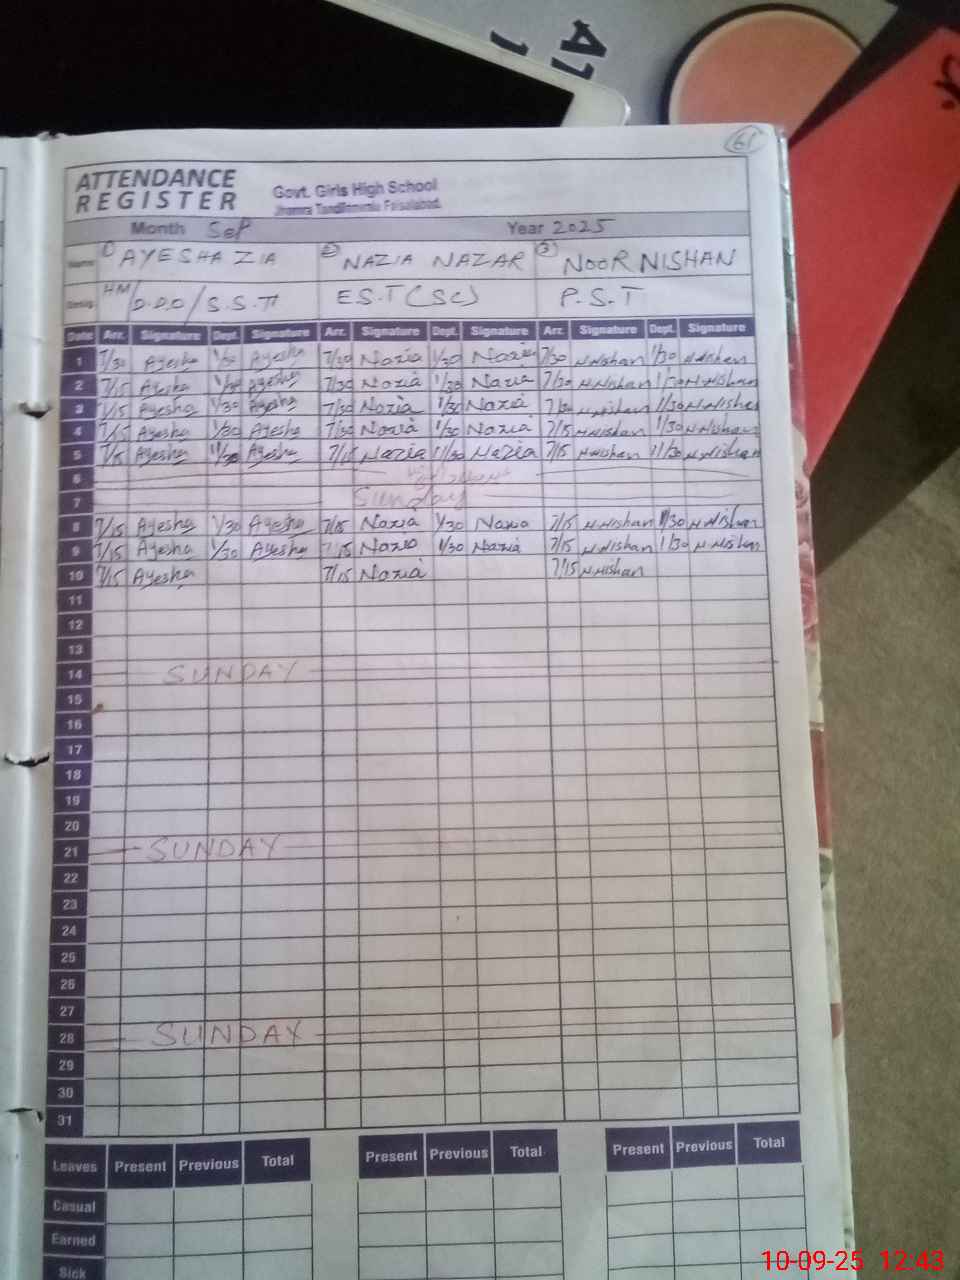 61
ATTENDANCE
REGISTER
Govt. Girls High School
Faisalabad.
Month Sep Year 2025
Name ① AYESHA ZIA ② NAZIA NAZAR ③ NOOR NISHAN
Desig. HM/D.D.O/S.S.T E.S.T (SC) P.S.T
Date Arr. Signature Dept. Signature Arr. Signature Dept. Signature Arr. Signature Dept. Signature
1 7/30 Ayesha 1/30 Ayesha 7/30 Nazia 1/30 Nazia 7/30 N.Nishan 1/30 N.Nishan
2 7/15 Ayesha Ayesha 7/30 Nazia 1/30 Nazia 7/30 N.Nishan 1/30 N.Nishan
3 7/15 Ayesha 1/30 Ayesha 7/30 Nazia 1/30 Nazia 7/30 N.Nishan 1/30 N.Nishan
4 7/15 Ayesha 1/30 Ayesha 7/30 Nazia 1/30 Nazia 7/15 N.Nishan 1/30 N.Nishan
5 7/15 Ayesha Ayesha 7/15 Nazia 11/30 Nazia 7/15 N.Nishan 11/30 N.Nishan
6
7 Sunday
8 7/15 Ayesha 1/30 Ayesha 7/15 Nazia 1/30 Nazia 7/15 N.Nishan 1/30 N.Nishan
9 7/15 Ayesha 1/30 Ayesha 7/15 Nazia 1/30 Nazia 7/15 N.Nishan 1/30 N.Nishan
10 7/15 Ayesha 7/15 Nazia 7/15 N.Nishan
11
12
13
14 SUNDAY
15
16
17
18
19
20
21 SUNDAY
22
23
24
25
26
27
28 SUNDAY
29
30
31
Leaves Present Previous Total Present Previous Total Present Previous Total
Casual
Earned
Sick
10-09-25 12:43